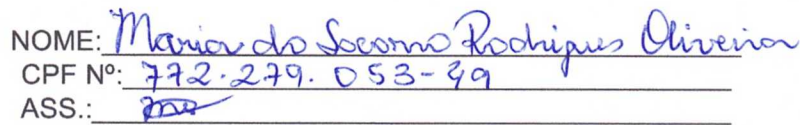 NOME: Maria do Socorro Rodrigues Oliveira
CPF Nº: 772.279.053-49
ASS.: